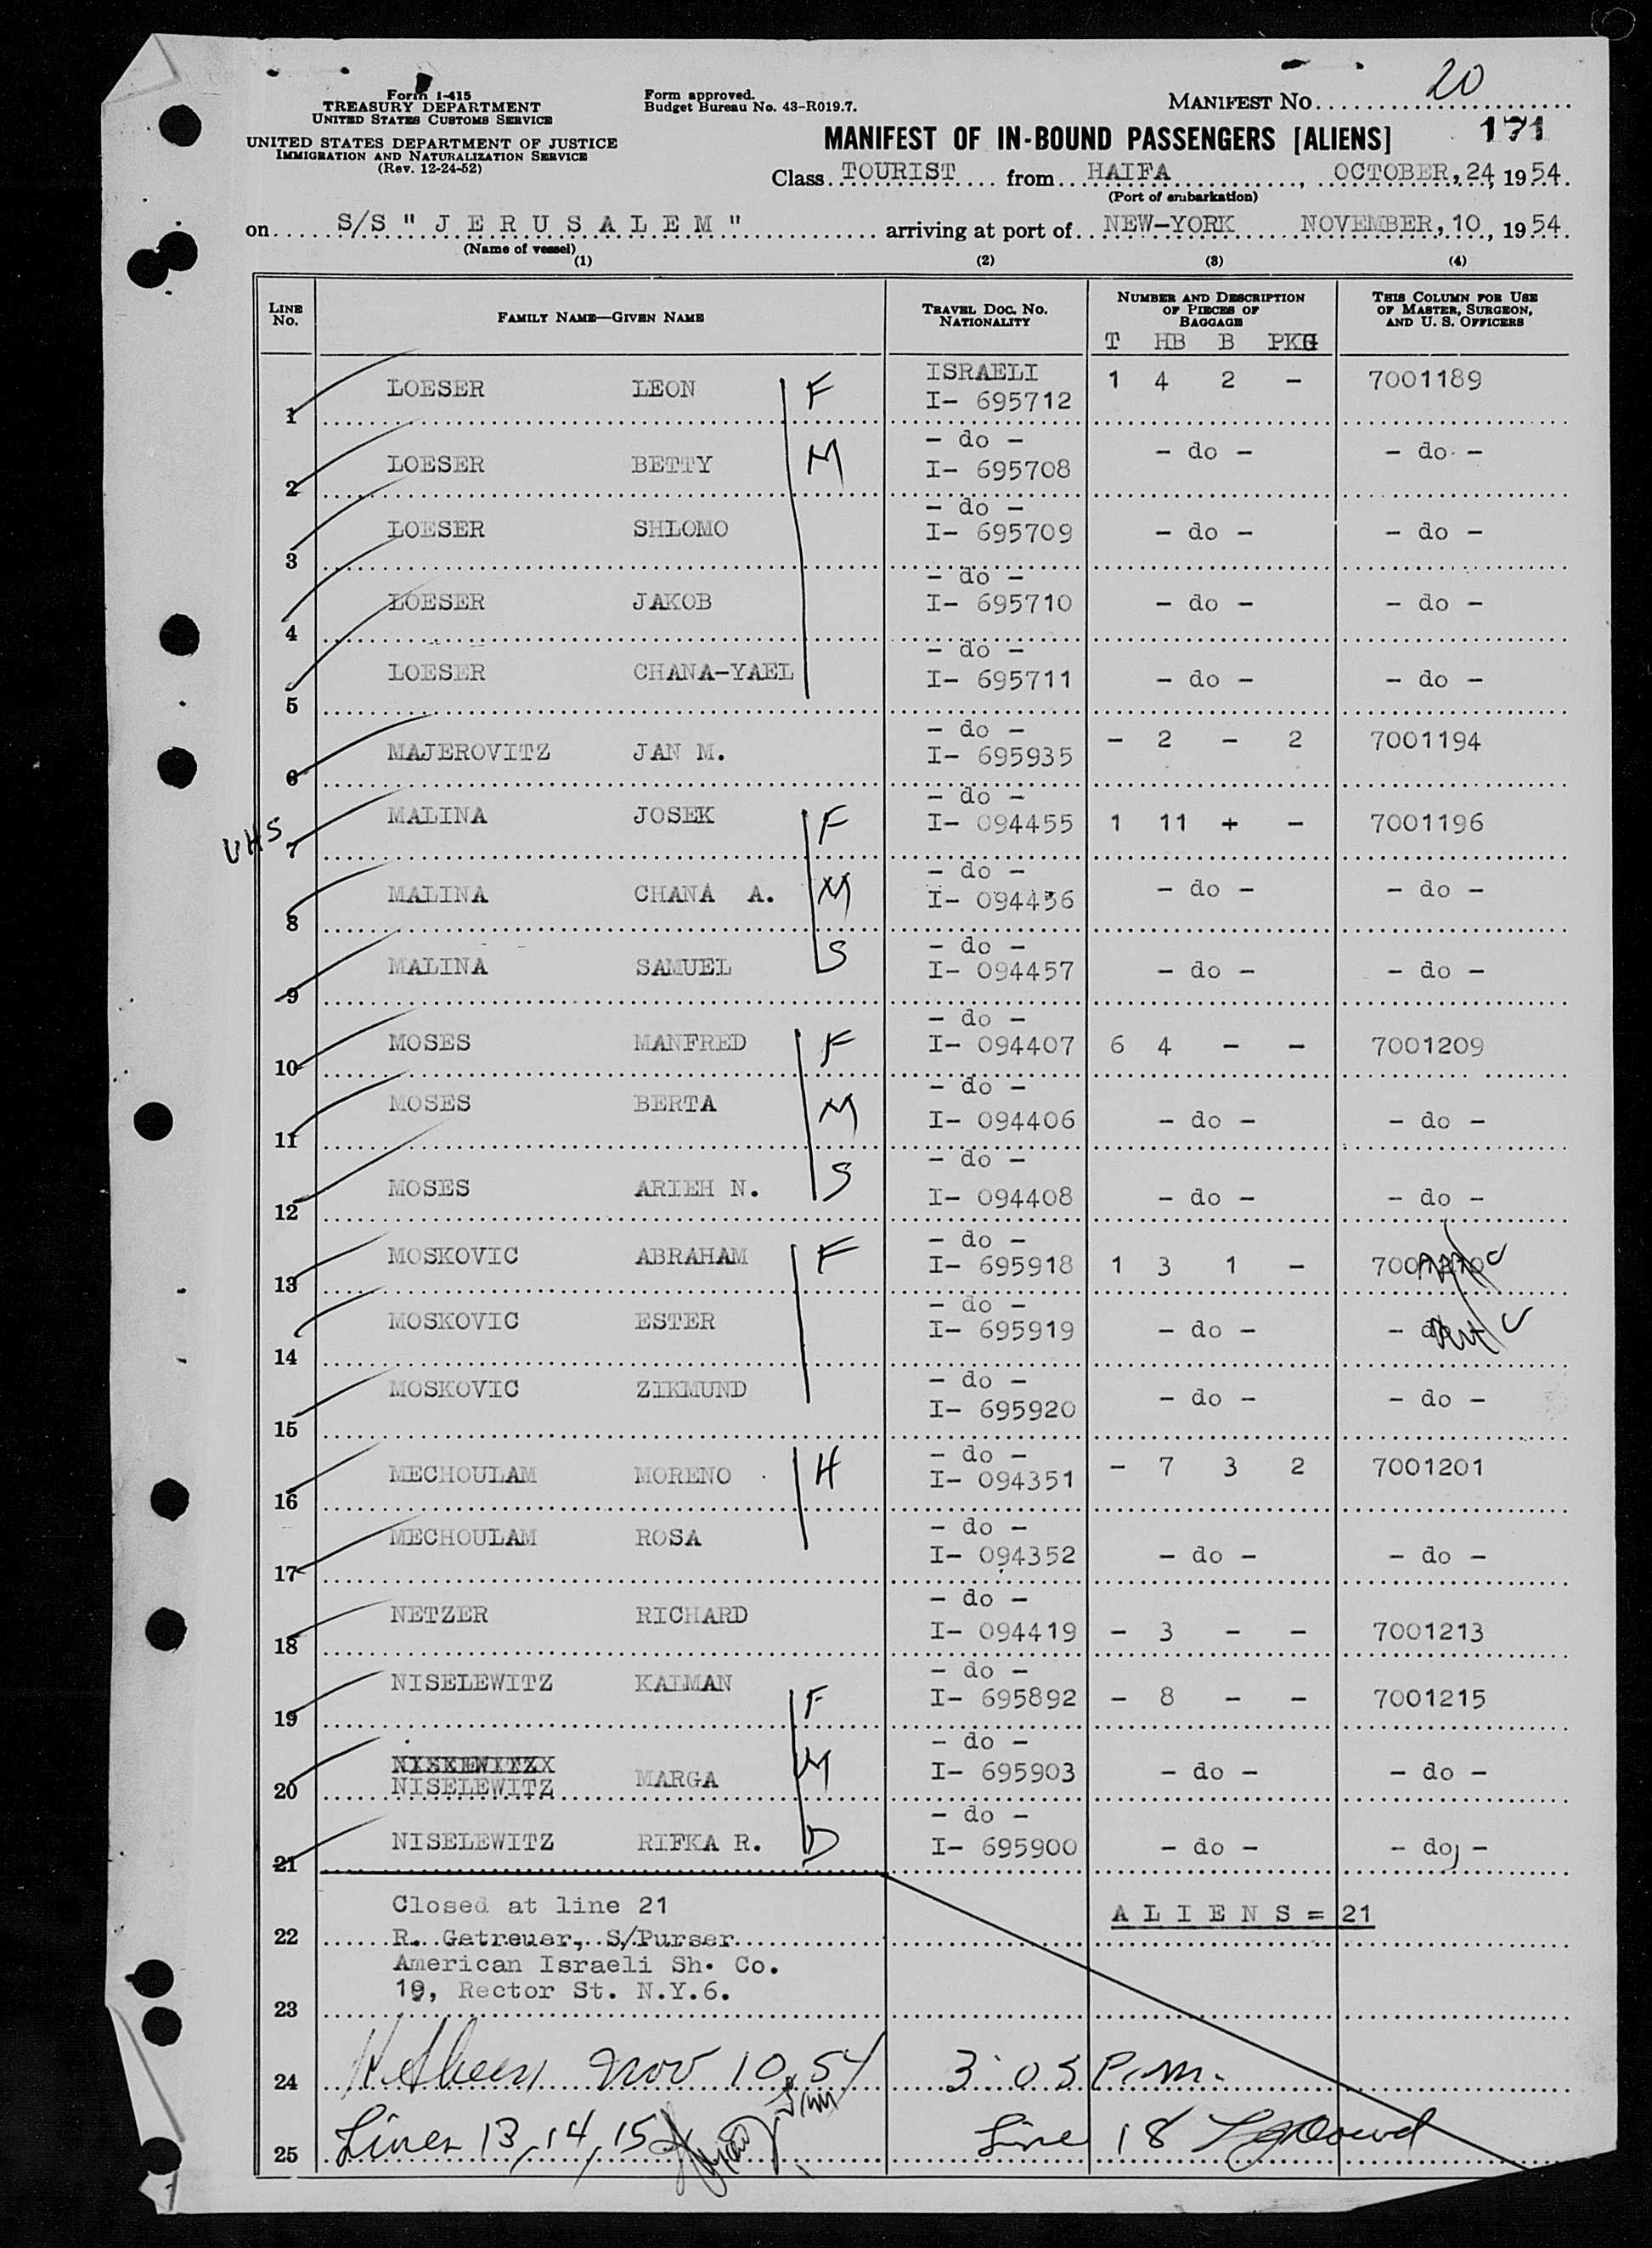 Form I-415
TREASURY DEPARTMENT
UNITED STATES CUSTOMS SERVICE
UNITED STATES DEPARTMENT OF JUSTICE
IMMIGRATION AND NATURALIZATION SERVICE
(Rev. 12-24-52)
Form approved.
Budget Bureau No. 43-R019.7.
MANIFEST NO. 20
171
MANIFEST OF IN-BOUND PASSENGERS [ALIENS]
Class TOURIST from HAIFA, OCTOBER, 24, 1954.
(Port of embarkation)
on S/S "JERUSALEM" arriving at port of NEW-YORK NOVEMBER, 10, 1954.
(Name of vessel)
(1) (2) (3) (4)
LINE NO. FAMILY NAME—GIVEN NAME TRAVEL DOC. NO. NATIONALITY NUMBER AND DESCRIPTION OF PIECES OF BAGGAGE THIS COLUMN FOR USE OF MASTER, SURGEON, AND U. S. OFFICERS
T HB B PKG
ISRAELI
1 LOESER LEON F I- 695712 1 4 2 - 7001189
- do -
2 LOESER BETTY M I- 695708 - do - - do -
- do -
3 LOESER SHLOMO I- 695709 - do - - do -
- do -
4 LOESER JAKOB I- 695710 - do - - do -
- do -
5 LOESER CHANA-YAEL I- 695711 - do - - do -
- do -
6 MAJEROVITZ JAN M. I- 695935 - 2 - 2 7001194
- do -
UHS 7 MALINA JOSEK F I- 094455 1 11 + - 7001196
- do -
8 MALINA CHANA A. M I- 094456 - do - - do -
- do -
9 MALINA SAMUEL S I- 094457 - do - - do -
- do -
10 MOSES MANFRED F I- 094407 6 4 - - 7001209
- do -
11 MOSES BERTA M I- 094406 - do - - do -
- do -
12 MOSES ARIEH N. S I- 094408 - do - - do -
- do -
13 MOSKOVIC ABRAHAM F I- 695918 1 3 1 - 7001210
- do -
14 MOSKOVIC ESTER I- 695919 - do - - do -
- do -
15 MOSKOVIC ZIKMUND I- 695920 - do - - do -
- do -
16 MECHOULAM MORENO H I- 094351 - 7 3 2 7001201
- do -
17 MECHOULAM ROSA I- 094352 - do - - do -
- do -
18 NETZER RICHARD I- 094419 - 3 - - 7001213
- do -
19 NISELEWITZ KALMAN F I- 695892 - 8 - - 7001215
- do -
20 NISELEWITZ MARGA M I- 695903 - do - - do -
- do -
21 NISELEWITZ RIFKA R. D I- 695900 - do - - do -
Closed at line 21 ALIENS = 21
22 R. Getreuer, S/Purser
American Israeli Sh. Co.
23 19, Rector St. N.Y.6.
24 Nov 10, 54 3:05 P.M.
25 Lines 13, 14, 15 Line 18